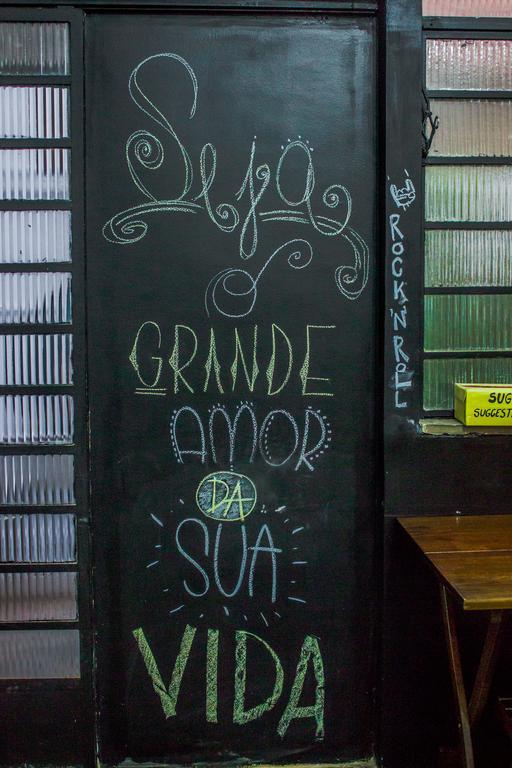 Seja
o
GRANDE
AMOR
DA
SUA
VIDA
ROCK'N ROLL
SUG
SUGGEST